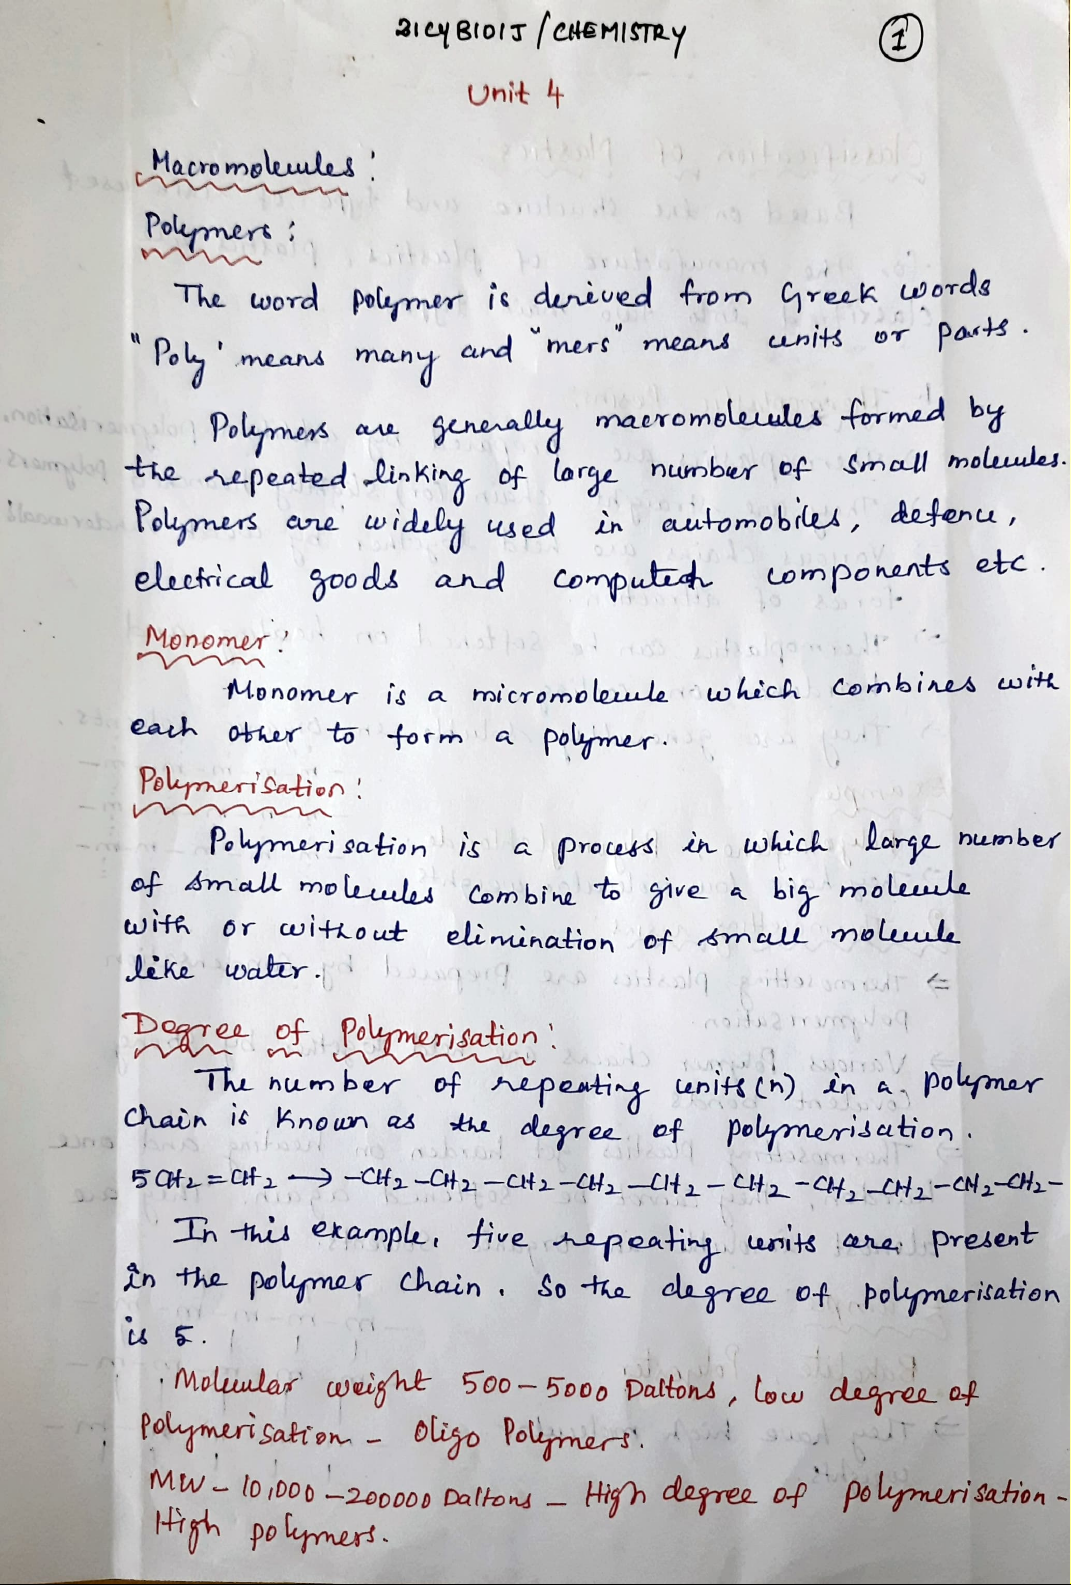 21CYB101J / CHEMISTRY
1
Unit 4
Macromolecules :
Polymers :
The word polymer is derived from Greek words
"Poly' means many and "mers" means units or parts.
Polymers are generally macromolecules formed by
the repeated linking of large number of small molecules.
Polymers are widely used in automobiles, defence,
electrical goods and computer components etc.
Monomer :
Monomer is a micromolecule which combines with
each other to form a polymer.
Polymerisation :
Polymerisation is a process in which large number
of small molecules combine to give a big molecule
with or without elimination of small molecule
like water.
Degree of Polymerisation :
The number of repeating units (n) in a polymer
chain is known as the degree of polymerisation.
5 CH2 = CH2 → -CH2 -CH2 -CH2 -CH2 -CH2 - CH2 -CH2 -CH2 -CH2 -CH2 -
In this example, five repeating units are present
in the polymer chain. So the degree of polymerisation
is 5.
Molecular weight 500 - 5000 Daltons, low degree of
Polymerisation - Oligo Polymers.
MW - 10,000 - 200000 Daltons - High degree of polymerisation -
High polymers.